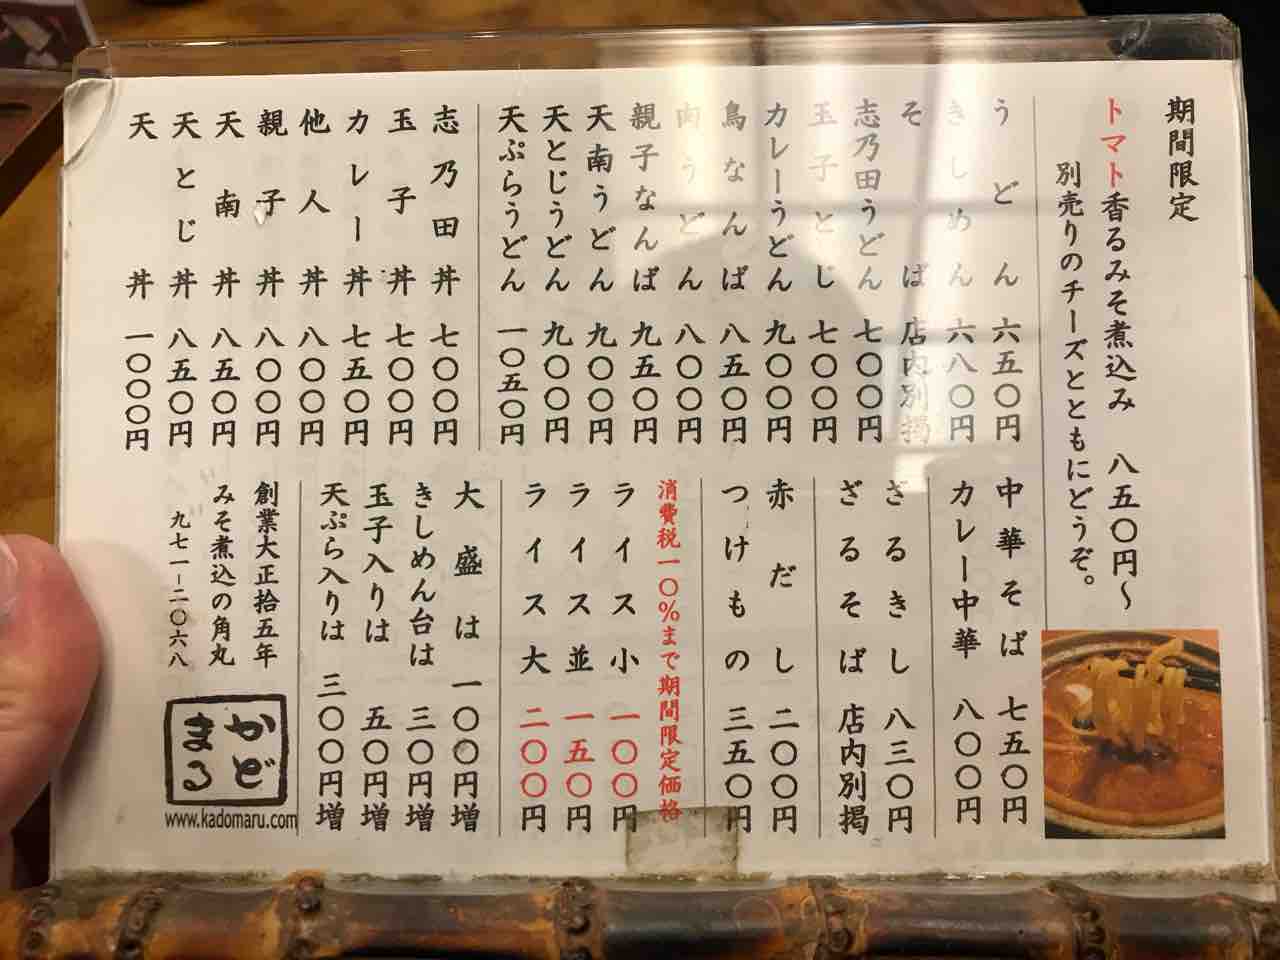 期間限定
トマト香るみそ煮込み 八五〇円～
別売りのチーズとともにどうぞ。
うどん 六五〇円
きしめん 六八〇円
そば 店内別掲
志乃田うどん 七〇〇円
玉子とじ 七〇〇円
カレーうどん 九〇〇円
鳥なんば 八五〇円
肉うどん 八〇〇円
親子なんば 九五〇円
天南うどん 九〇〇円
天とじうどん 九〇〇円
天ぷらうどん 一〇五〇円
志乃田丼 七〇〇円
玉子丼 七〇〇円
カレー丼 七五〇円
他人丼 八〇〇円
親子丼 八〇〇円
天南丼 八五〇円
天とじ丼 八五〇円
天丼 一〇〇〇円
中華そば 七五〇円
カレー中華 八〇〇円
ざるきし 八三〇円
ざるそば 店内別掲
赤だし 二〇〇円
つけもの 三五〇円
消費税一〇％まで期間限定価格
ライス小 一〇〇円
ライス並 一五〇円
ライス大 二〇〇円
大盛は 一〇〇円増
きしめん台は 三〇円増
玉子入りは 五〇円増
天ぷら入りは 三〇〇円増
創業大正拾五年
みそ煮込の角丸
九七一－二〇六八
かど
まる
www.kadomaru.com